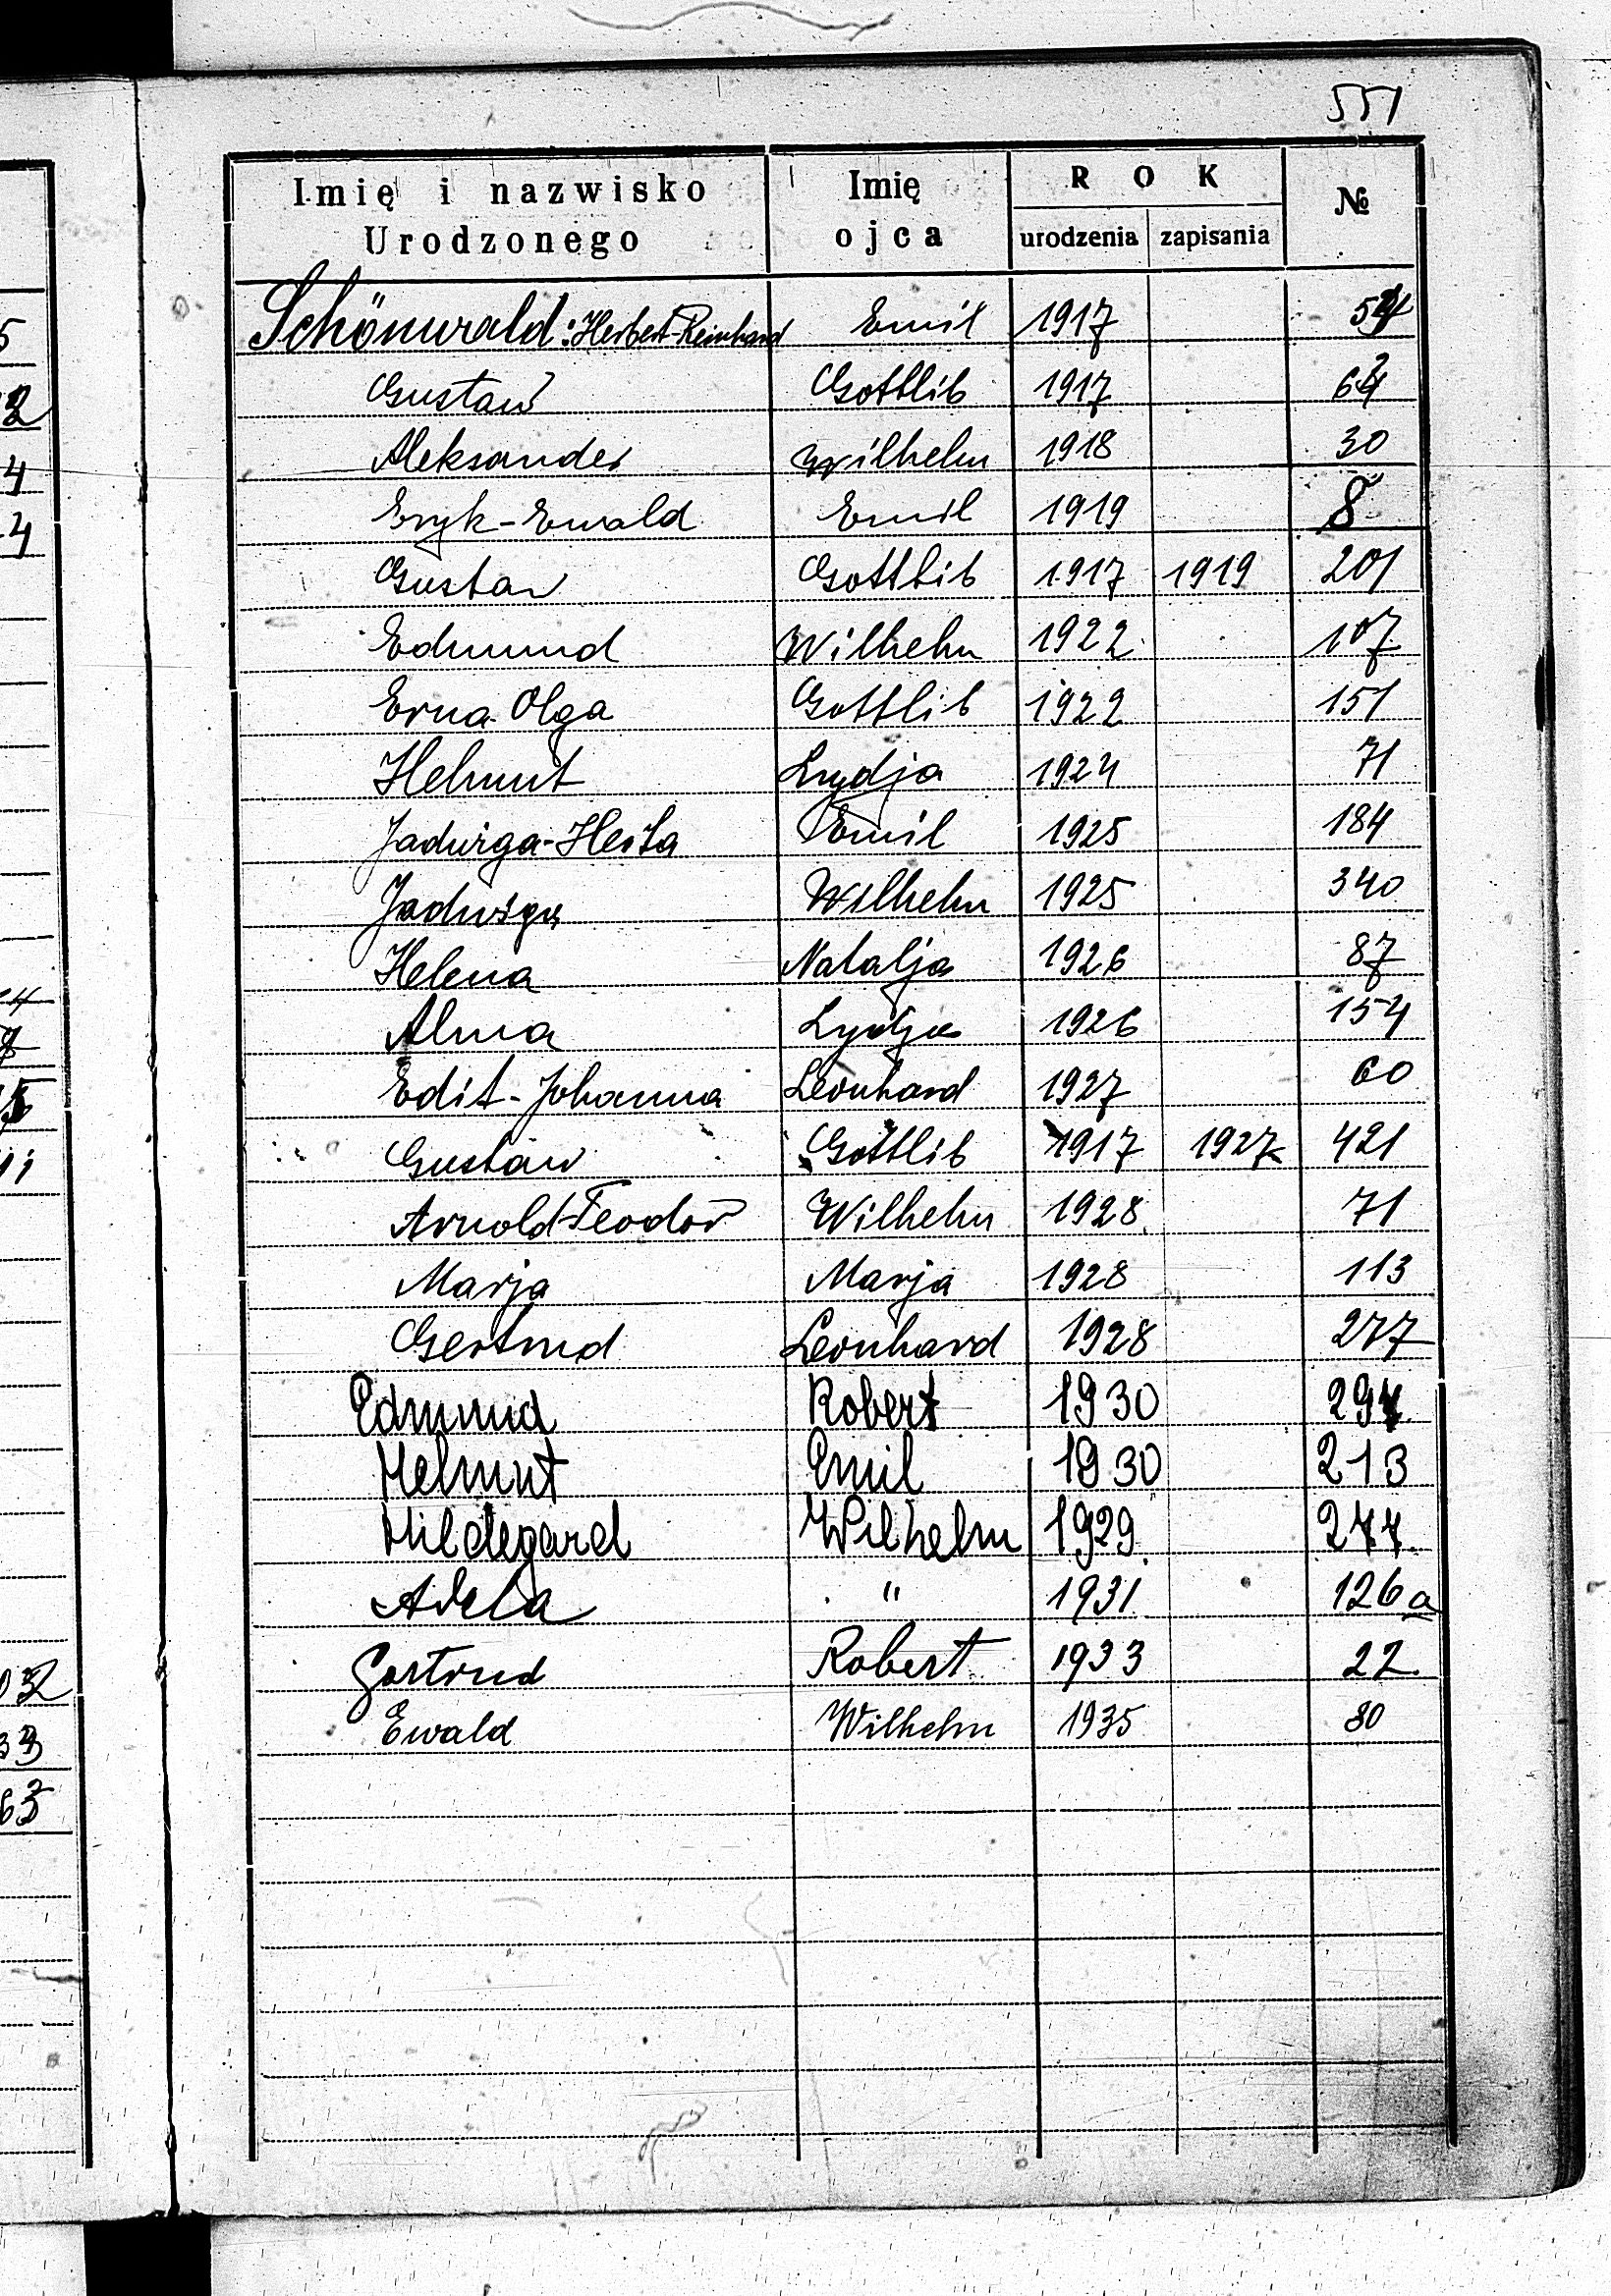 551
Imię i nazwisko Urodzonego | Imię ojca | ROK urodzenia | zapisania | №
Schönwald: Herbert-Reinhard Emil 1917
Gustaw Gottlib 1917
Aleksander Wilhelm 1918 30
Eryk-Ewald Emil 1919 8
Gustaw Gottlib 1917 1919 201
Edmund Wilhelm 1922 107
Erna Olga Gottlib 1922 151
Helmut Lydja 1924 71
Jadwiga-Herta Emil 1925 184
Jadwiga Wilhelm 1925 340
Helena Natalja 1926 87
Alma Lydja 1926 154
Edit-Johanna Leonhard 1927 60
Gustaw Gottlib 1917 1927 421
Arnold-Teodor Wilhelm 1928 71
Marja Marja 1928 113
Gertrud Leonhard 1928 277
Edmund Robert 1930
Helmut Emil 1930 213
Hildegard Wilhelm 1929 277
Adela " 1931 126a
Gertrud Robert 1933 22
Ewald Wilhelm 1935 80